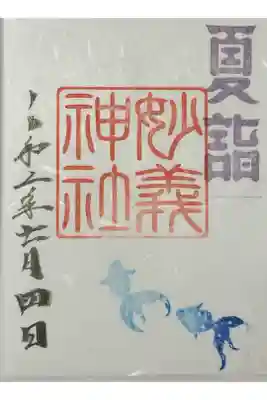 夏詣
妙義
神社
令和二年七月四日